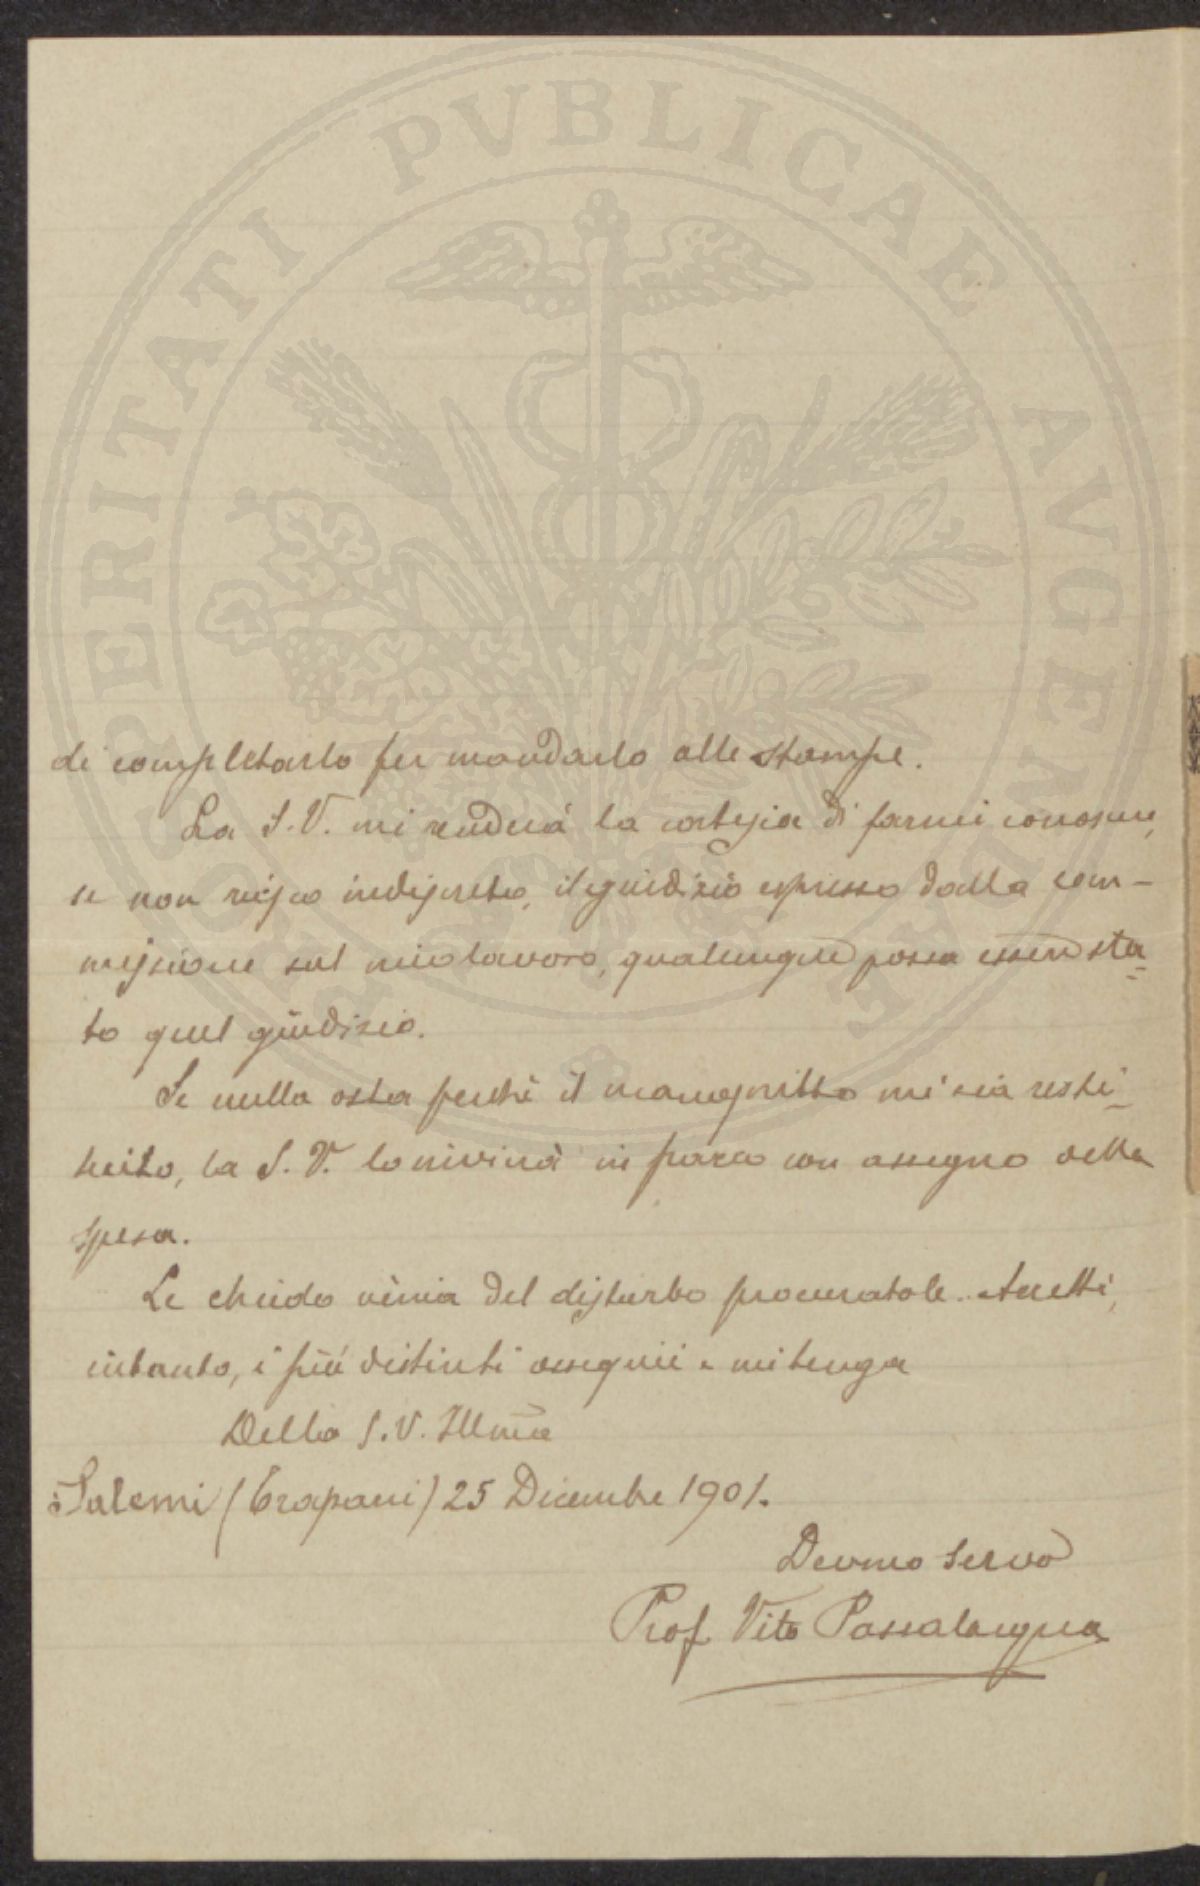 di completarlo per mandarlo alle stampe.
La S. V. mi renderà la cortesia di farmi conoscere,
se non riesco indiscreto, il giudizio espresso dalla com-
missione sul mio lavoro, qualunque possa essere sta-
to quel giudizio.
Se nulla osta perchè il manoscritto mi sia resti-
tuito, la S. V. lo invierà in pacco con assegno della
spesa.
Le chiedo venia del disturbo procuratole. Accetti,
intanto, i più distinti ossequii e mi tenga
Della S. V. Illma
Salemi (Trapani) 25 Dicembre 1901.
Devmo Servo
Prof. Vito Passalacqua
PROSPERITATI PVBLICAE AVGENDAE